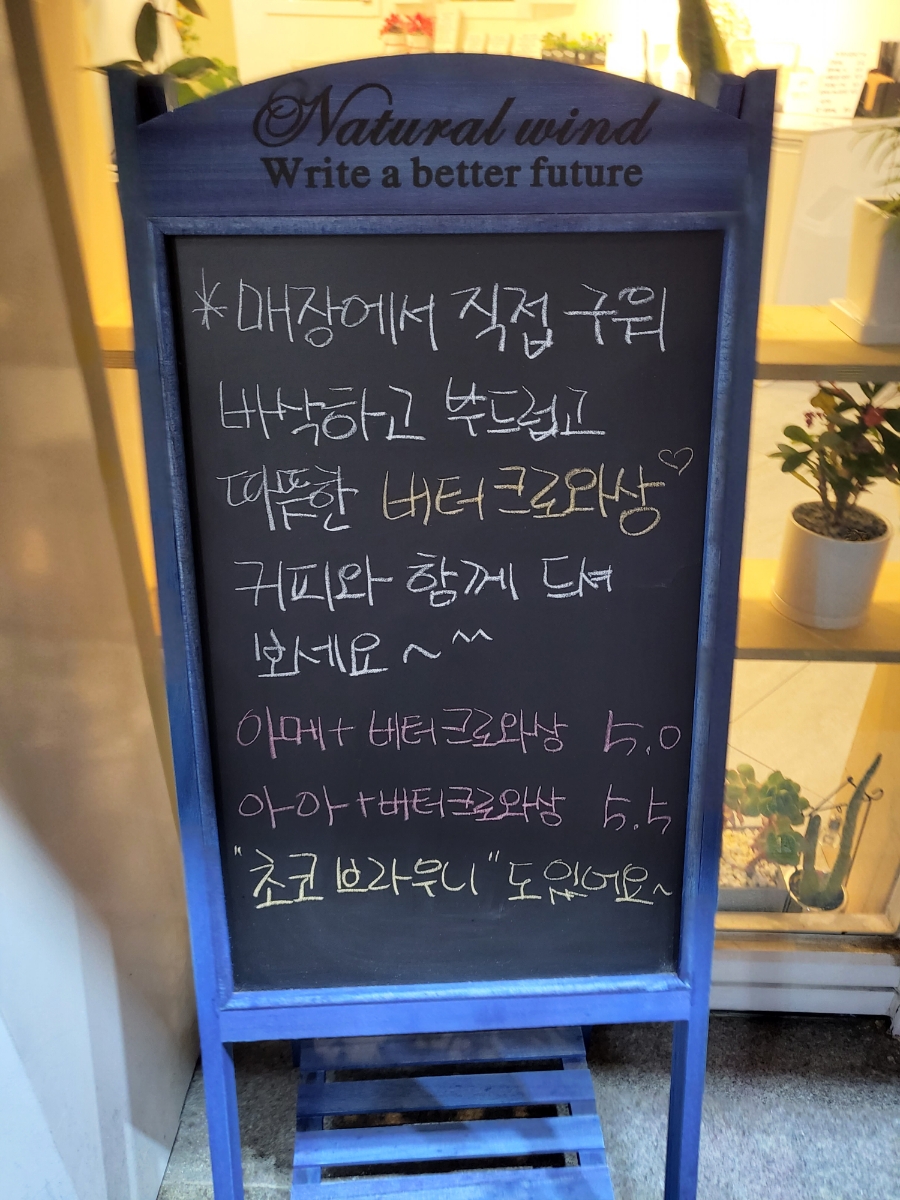 Natural wind
Write a better future
*매장에서 직접 구워
바삭하고 부드럽고
따뜻한 버터크로와상♡
커피와 함께 드셔
보세요~^^
아메+버터크로와상 5.0
아아+버터크로와상 5.5
"초코브라우니"도있어요~